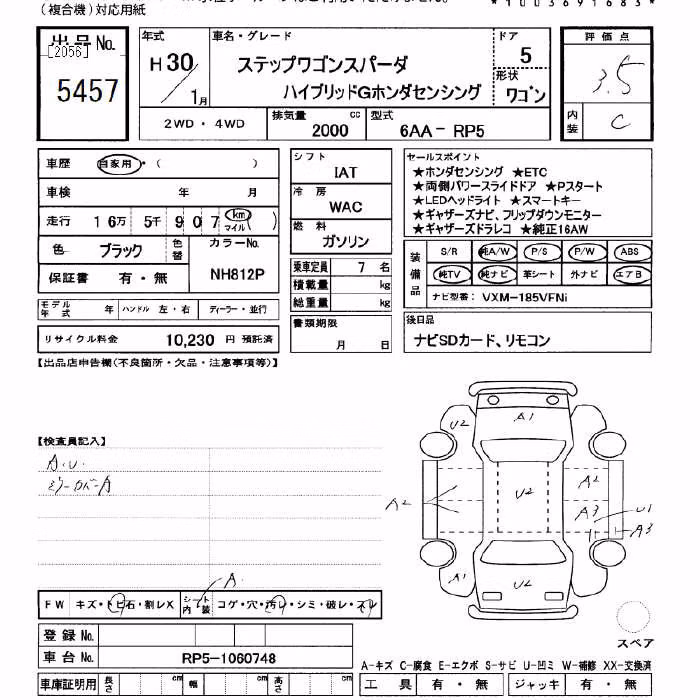 (複合機)対応用紙
*1003691683*
出品No.
[2056]
5457
年式
H30/1月
車名・グレード
ステップワゴンスパーダ
ハイブリッドGホンダセンシング
ドア
5
形状
ワゴン
評価点
3.5
内装
C
2WD・4WD
排気量
2000 cc
型式
6AA-RP5
車歴
自家用・( )
車検 年 月
走行 16万 5千 907 (km マイル)
色 ブラック 色替
カラーNo.
NH812P
保証書 有・無
モデル年式 年 ハンドル 左・右 ディーラー・並行
リサイクル料金 10,230 円 預託済
シフト
IAT
冷房
WAC
燃料
ガソリン
乗車定員 7 名
積載量 kg
総重量 kg
書類期限
月 日
セールスポイント
★ホンダセンシング ★ETC
★両側パワースライドドア ★Pスタート
★LEDヘッドライト ★スマートキー
★ギャザーズナビ、フリップダウンモニター
★ギャザーズドラレコ ★純正16AW
装備品
S/R 純A/W P/S P/W ABS
純TV 純ナビ 革シート 外ナビ エアB
ナビ型番: VXM-185VFNi
後日品
ナビSDカード、リモコン
【出品店申告欄(不良箇所・欠品・注意事項等)】
【検査員記入】
A.U.
ミラーカバーA
A1
U2
A2
U2
A2
A3
U1
A3
A1
U2
A.
FW キズ・トビ石・割レX シート内装 コゲ・穴・汚レ・シミ・破レ・スレ
登録No.
車台No. RP5-1060748
車庫証明用 長さ cm 幅 cm 高さ cm
スペア
A-キズ C-腐食 E-エクボ S-サビ U-凹ミ W-補修 XX-交換済
工具 有・無 ジャッキ 有・無